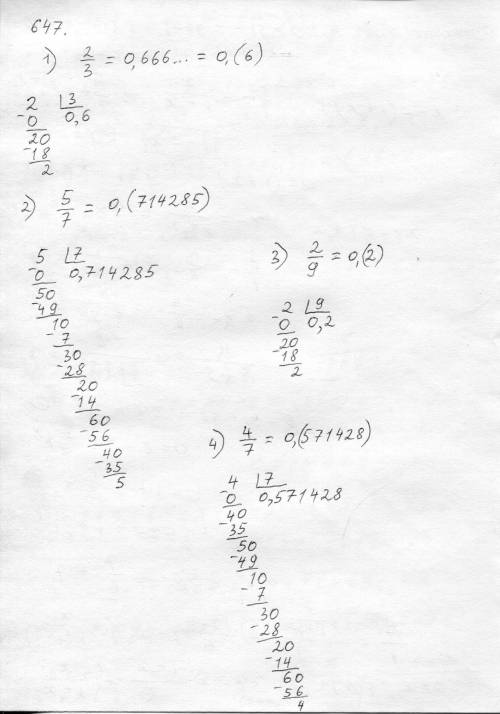 647.
1) 2/3 = 0,666... = 0,(6)
2 |3
-0 0,6
20
-18
2
2) 5/7 = 0,(714285)
5 |7
-0 0,714285
50
-49
10
-7
30
-28
20
-14
60
-56
-40
35
5
3) 2/9 = 0,(2)
-2 |9
0 0,2
20
-18
2
4) 4/7 = 0,(571428)
-4 |7
0 0,571428
-40
35
50
-49
10
-7
30
-28
20
-14
60
-56
4